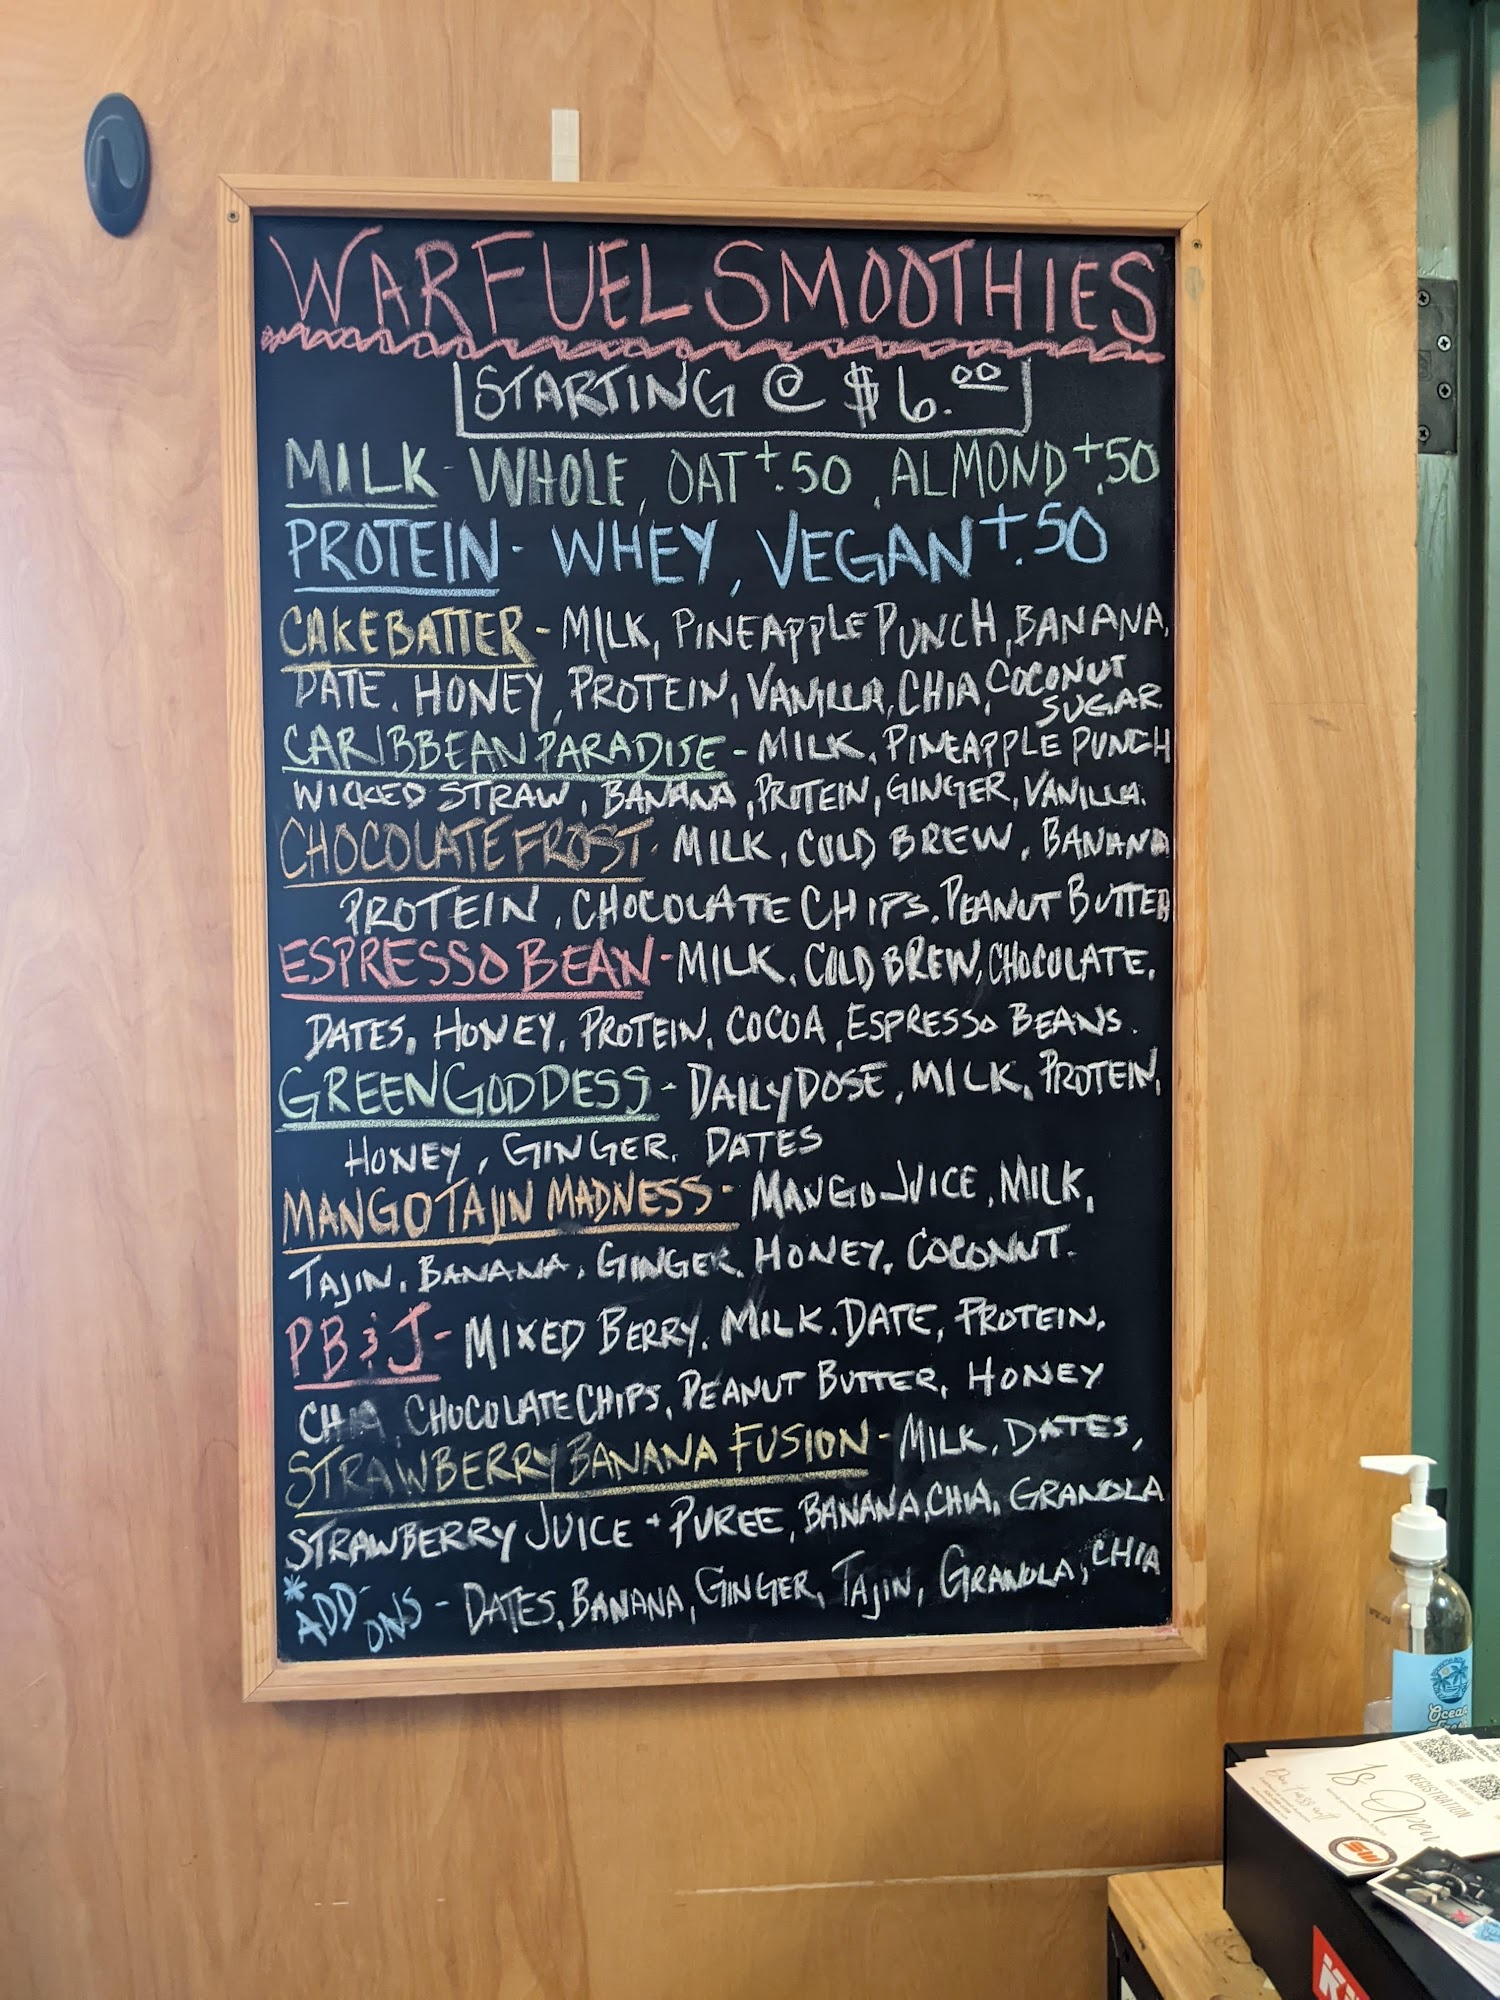 WARFUEL SMOOTHIES
STARTING @ $6.00
MILK - WHOLE, OAT +.50, ALMOND +.50
PROTEIN - WHEY, VEGAN +.50
CAKE BATTER - MILK, PINEAPPLE PUNCH, BANANA,
DATE, HONEY, PROTEIN, VANILLA, CHIA, COCONUT SUGAR
CARIBBEAN PARADISE - MILK, PINEAPPLE PUNCH
WICKED STRAW, BANANA, PROTEIN, GINGER, VANILLA.
CHOCOLATE FROST - MILK, COLD BREW, BANANA
PROTEIN, CHOCOLATE CHIPS, PEANUT BUTTER
ESPRESSO BEAN - MILK, COLD BREW, CHOCOLATE,
DATES, HONEY, PROTEIN, COCOA, ESPRESSO BEANS.
GREEN GODDESS - DAILY DOSE, MILK, PROTEIN,
HONEY, GINGER, DATES
MANGO TAJIN MADNESS - MANGO JUICE, MILK,
TAJIN, BANANA, GINGER, HONEY, COCONUT.
PB & J - MIXED BERRY, MILK, DATE, PROTEIN,
CHIA, CHOCOLATE CHIPS, PEANUT BUTTER, HONEY
STRAWBERRY BANANA FUSION - MILK, DATES,
STRAWBERRY JUICE + PUREE, BANANA, CHIA, GRANOLA
*ADD-ONS - DATES, BANANA, GINGER, TAJIN, GRANOLA, CHIA
Ocean
REGISTRATION
Is Open
SW